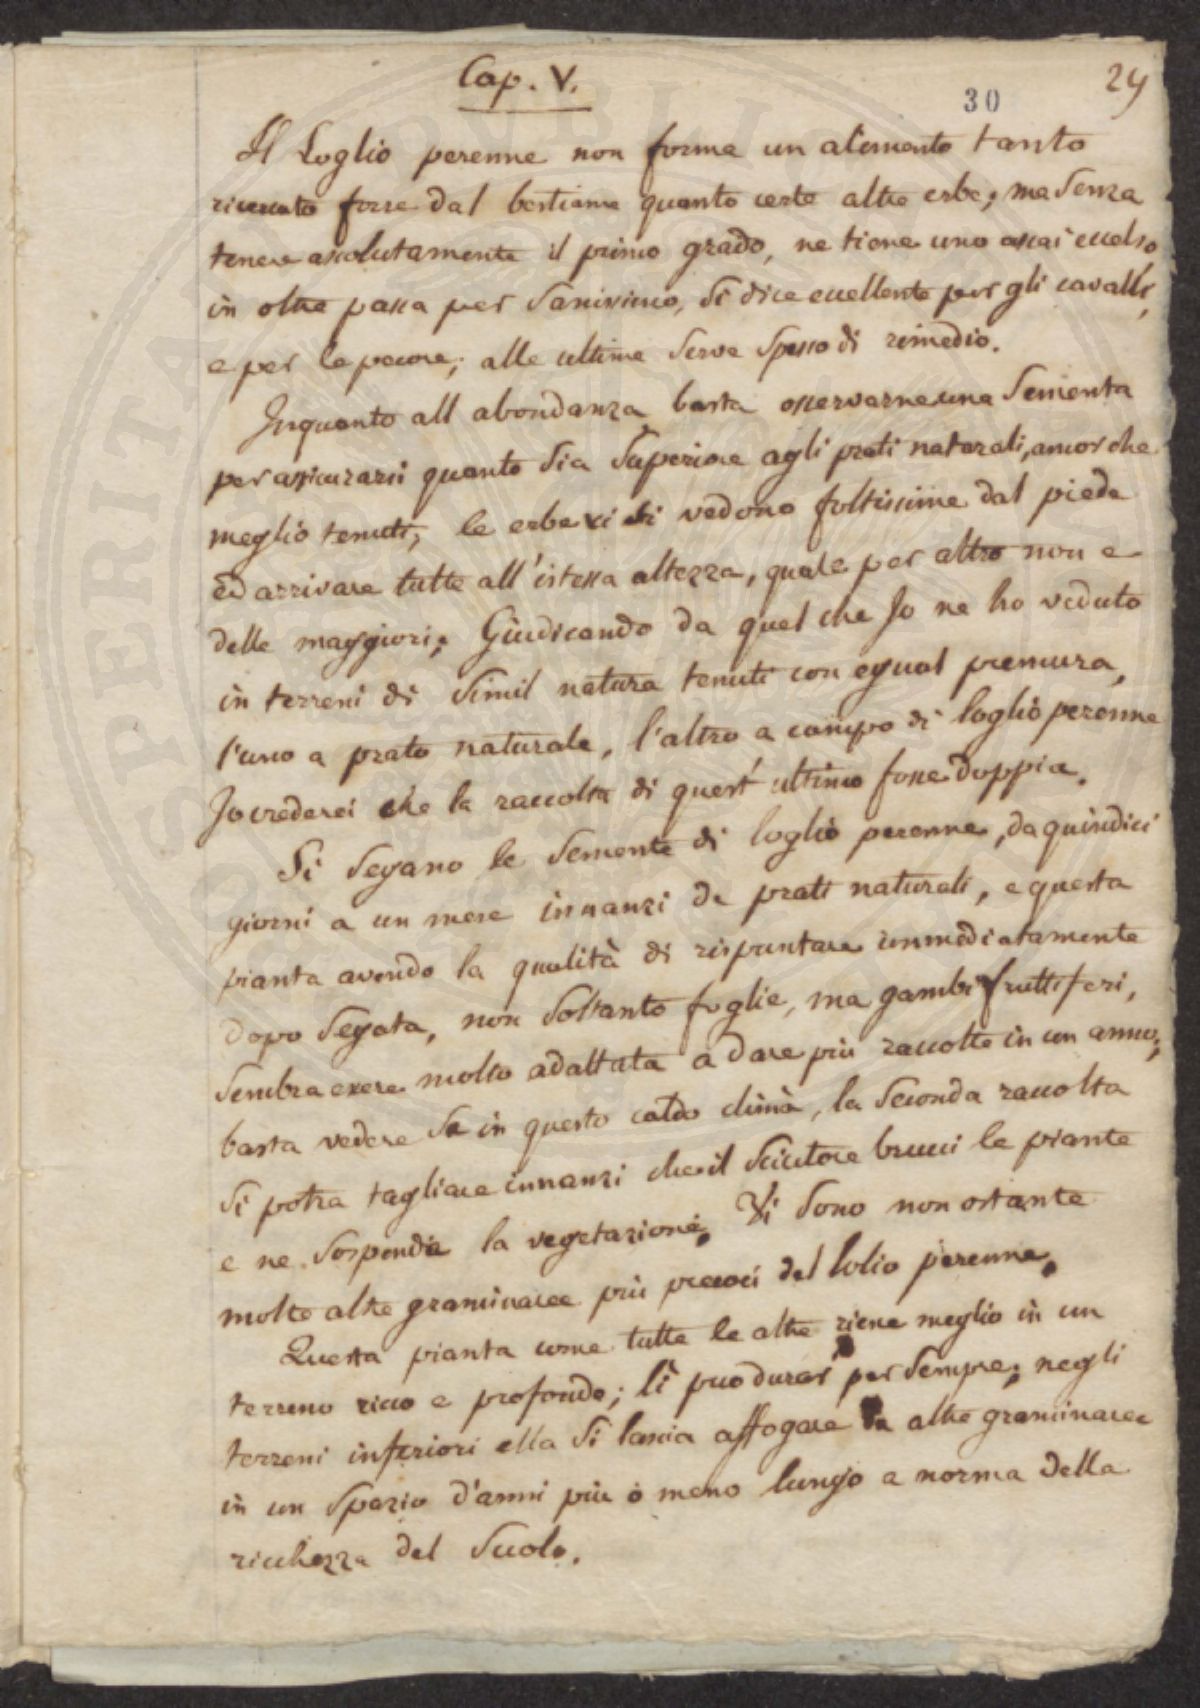 Cap. V.
29
30
Il Loglio perenne non forma un alimento tanto
ricercato forse dal bestiame quanto certe altre erbe; ma senza
tenere assolutamente il primo grado, ne tiene uno assai eccelso,
in oltre passa per sanissimo, si dice eccellente per gli cavalli,
e per le pecore; alle ultime serve spesso di rimedio.
Inquanto all abondanza basta osservarne una sementa
per assicurarsi quanto sia superiore agli prati naturali, ancorche
meglio tenuti; le erbe vi si vedono foltissime dal piede
ed arrivare tutte all'istessa altezza, quale per altro non e
delle maggiori; Giudicando da quel che Io ne ho veduto
in terreni di simil natura tenuti con egual premura,
l'uno a prato naturale, l'altro a campo di loglio perenne
Io crederei che la raccolta di quest' ultimo fosse doppia.
Si segano le semente di loglio perenne, da quindici
giorni a un mese innanzi de prati naturali, e questa
pianta avendo la qualità di rispuntare immediatamente
dopo segata, non soltanto foglie, ma gambi fruttiferi,
sembra essere molto adattata a dare più raccolte in un anno;
basta vedere se in questo caldo clima, la seconda raccolta
si potra tagliare innanzi che il sciutore bruci le piante
e ne sospenda la vegetazione. Vi sono non ostante
molte altre graminacee più precoci del lolio perenne.
Questa pianta come tutte le altre viene meglio in un
terreno ricco e profondo; lì puo durar per sempre; negli
terreni inferiori ella si lascia affogare da altre graminacee
in un spazio d'anni più o meno lungo a norma della
richezza del suolo.